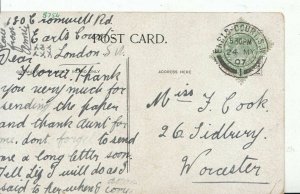 180 Cromwell Rd
Earls Court
London S.W.
POST CARD.
Dear
Florrie. Thank
you very much for
sending the paper
and thank aunt for
me, dont forget to send
me a long letter soon.
Tell Lily I will do as I
said to her when I come
ADDRESS HERE
Miss F. Cook
26 Sidbury
Worcester
EARLS COURT
24 MY
07